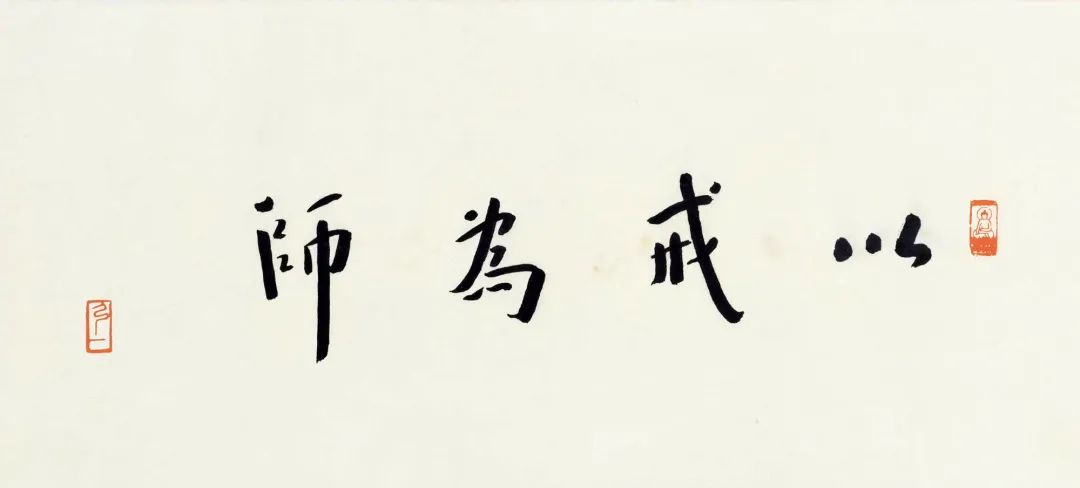 以戒為師
弘一